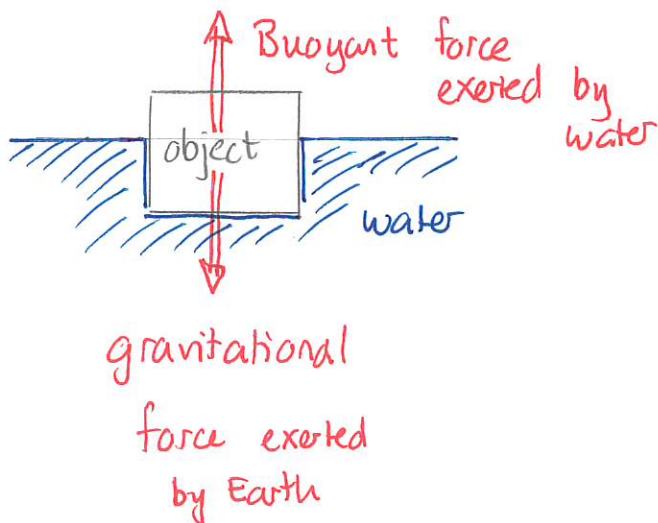 Buoyant force
exerted by
water
object
water
gravitational
force exerted
by Earth